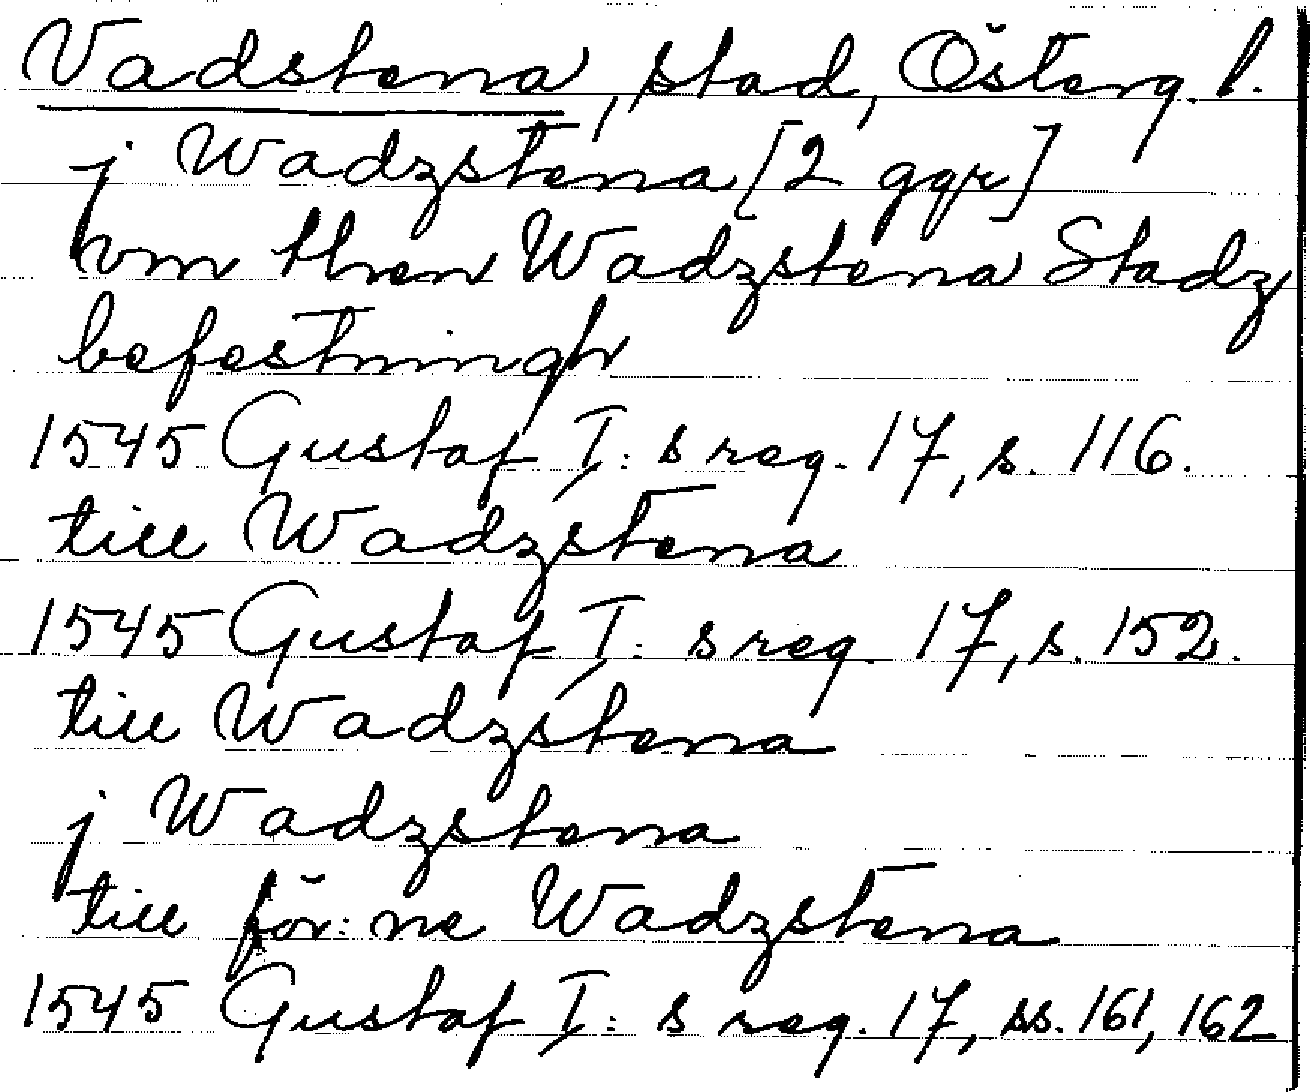 Vadstena, stad, Österg. l.
j Wadzstena [2 ggr]
vm then Wadzstena Stadz
befestningh
1545 Gustaf I: s reg. 17, s. 116.
till Wadzstena
1545 Gustaf I: s reg. 17, s. 152.
till Wadzstena
j Wadzstena
till för: ne Wadzstena
1545 Gustaf I: s reg. 17, ss. 161, 162